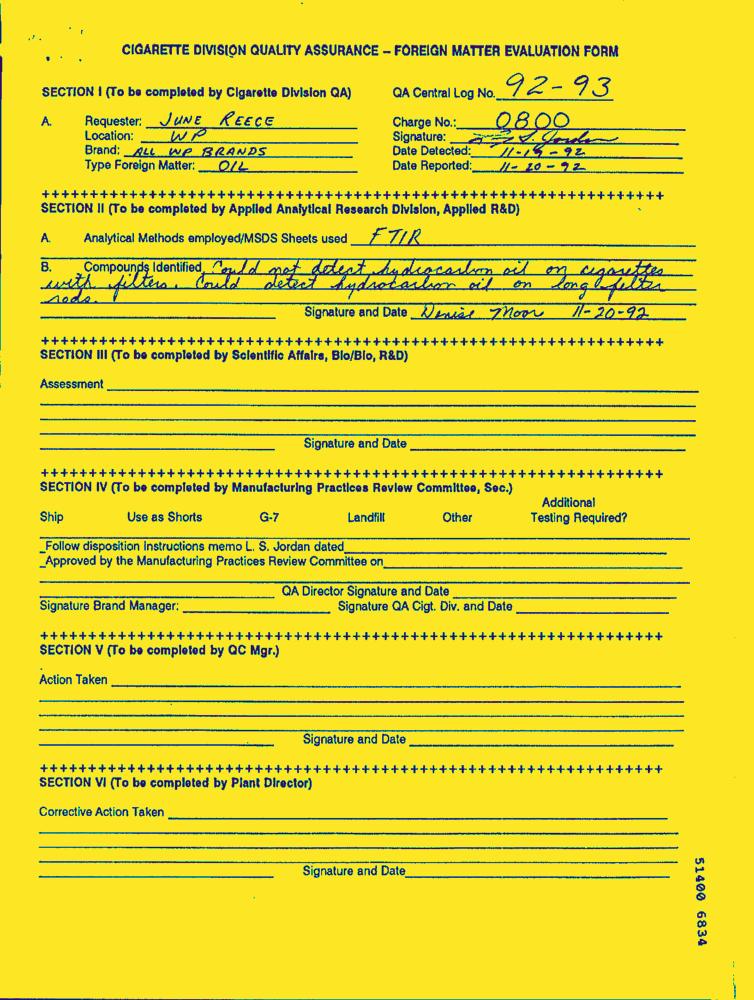 CIGARETTE DIVISION QUALITY ASSURANCE – FOREIGN MATTER EVALUATION FORM
SECTION I (To be completed by Cigarette Division QA) QA Central Log No. 92-93
A. Requester: JUNE REECE Charge No.: 0800
Location: WP Signature: L. S. Jordan
Brand: ALL WP BRANDS Date Detected: 11-19-92
Type Foreign Matter: OIL Date Reported: 11-20-92
++++++++++++++++++++++++++++++++++++++++++++++++++++++++++++++++
SECTION II (To be completed by Applied Analytical Research Division, Applied R&D)
A. Analytical Methods employed/MSDS Sheets used FTIR
B. Compounds Identified Could not detect hydrocarbon oil on cigarettes
with filters. Could detect hydrocarbon oil on long filter
rods.
Signature and Date Denise Moor 11-20-92
++++++++++++++++++++++++++++++++++++++++++++++++++++++++++++++++
SECTION III (To be completed by Scientific Affairs, Bio/Bio, R&D)
Assessment
Signature and Date
++++++++++++++++++++++++++++++++++++++++++++++++++++++++++++++++
SECTION IV (To be completed by Manufacturing Practices Review Committee, Sec.)
Additional
Ship Use as Shorts G-7 Landfill Other Testing Required?
_Follow disposition instructions memo L. S. Jordan dated
_Approved by the Manufacturing Practices Review Committee on
QA Director Signature and Date
Signature Brand Manager: Signature QA Cigt. Div. and Date
++++++++++++++++++++++++++++++++++++++++++++++++++++++++++++++++
SECTION V (To be completed by QC Mgr.)
Action Taken
Signature and Date
++++++++++++++++++++++++++++++++++++++++++++++++++++++++++++++++
SECTION VI (To be completed by Plant Director)
Corrective Action Taken
Signature and Date
51400 6834